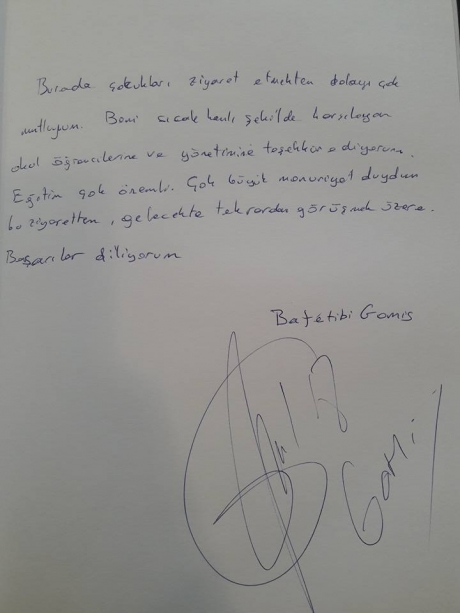 Burada çocukları ziyaret etmekten dolayı çok
mutluyum. Beni sıcak kanlı şekilde karşılayan
okul öğrencilerine ve yönetimine teşekkür ediyorum.
Eğitim çok önemli. Çok büyük memnuniyet duydum
bu ziyaretten, gelecekte tekrardan görüşmek üzere.
Başarılar diliyorum
Bafétibi Gomis
Gomis